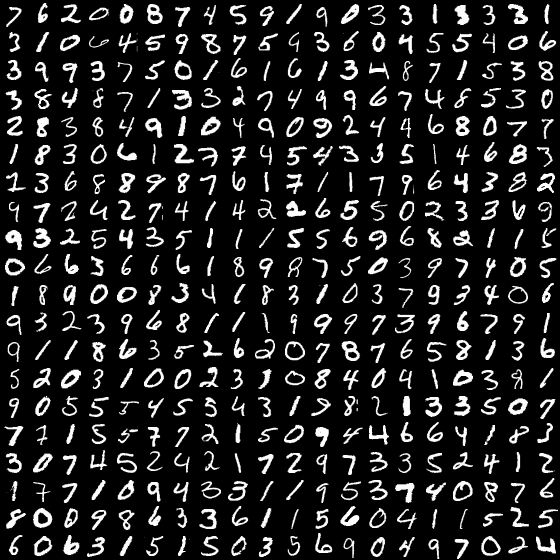 7 6 2 0 0 8 7 4 5 9 1 9 0 3 3 1 3 3 3 1
3 1 0 6 4 5 9 8 7 5 9 3 6 0 9 5 5 4 0 6
3 9 9 3 7 5 0 1 6 1 6 1 3 4 8 7 1 5 3 8
3 8 4 8 7 1 3 3 2 7 4 9 9 6 7 4 8 5 3 0
2 8 3 8 4 9 1 0 4 9 0 9 2 4 4 6 8 0 7 7
1 8 3 0 6 1 2 7 7 4 5 4 3 3 5 1 4 6 8 3
1 3 6 8 8 9 8 7 6 1 7 1 1 7 9 6 4 3 8 2
9 7 2 4 2 7 4 1 4 2 2 6 5 5 0 2 3 3 6 9
9 3 2 5 4 3 5 1 1 1 5 5 6 9 6 8 2 1 1 5
0 6 6 3 6 6 6 1 8 9 8 7 5 0 3 9 7 4 0 5
1 8 9 0 0 8 3 4 1 8 3 1 0 3 7 9 3 4 0 6
9 3 2 3 9 6 8 1 1 1 9 9 9 7 3 9 6 7 9 1
9 1 1 8 6 3 5 2 6 2 0 7 8 7 6 5 8 1 3 6
5 2 0 3 1 0 0 2 3 1 0 8 4 0 4 1 0 3 8 1
9 0 5 5 5 4 5 3 4 3 1 9 8 2 1 3 3 5 0 7
7 7 1 5 5 7 7 2 1 5 0 9 4 4 6 6 4 1 8 3
3 0 7 4 5 2 4 2 1 7 2 9 7 3 3 5 2 4 1 2
1 7 7 1 0 9 4 3 3 1 1 9 5 3 7 4 0 8 7 6
8 0 0 9 8 6 3 3 6 1 1 5 6 0 4 1 1 5 2 5
6 0 6 3 1 5 1 5 0 3 5 6 9 0 4 9 7 0 2 4